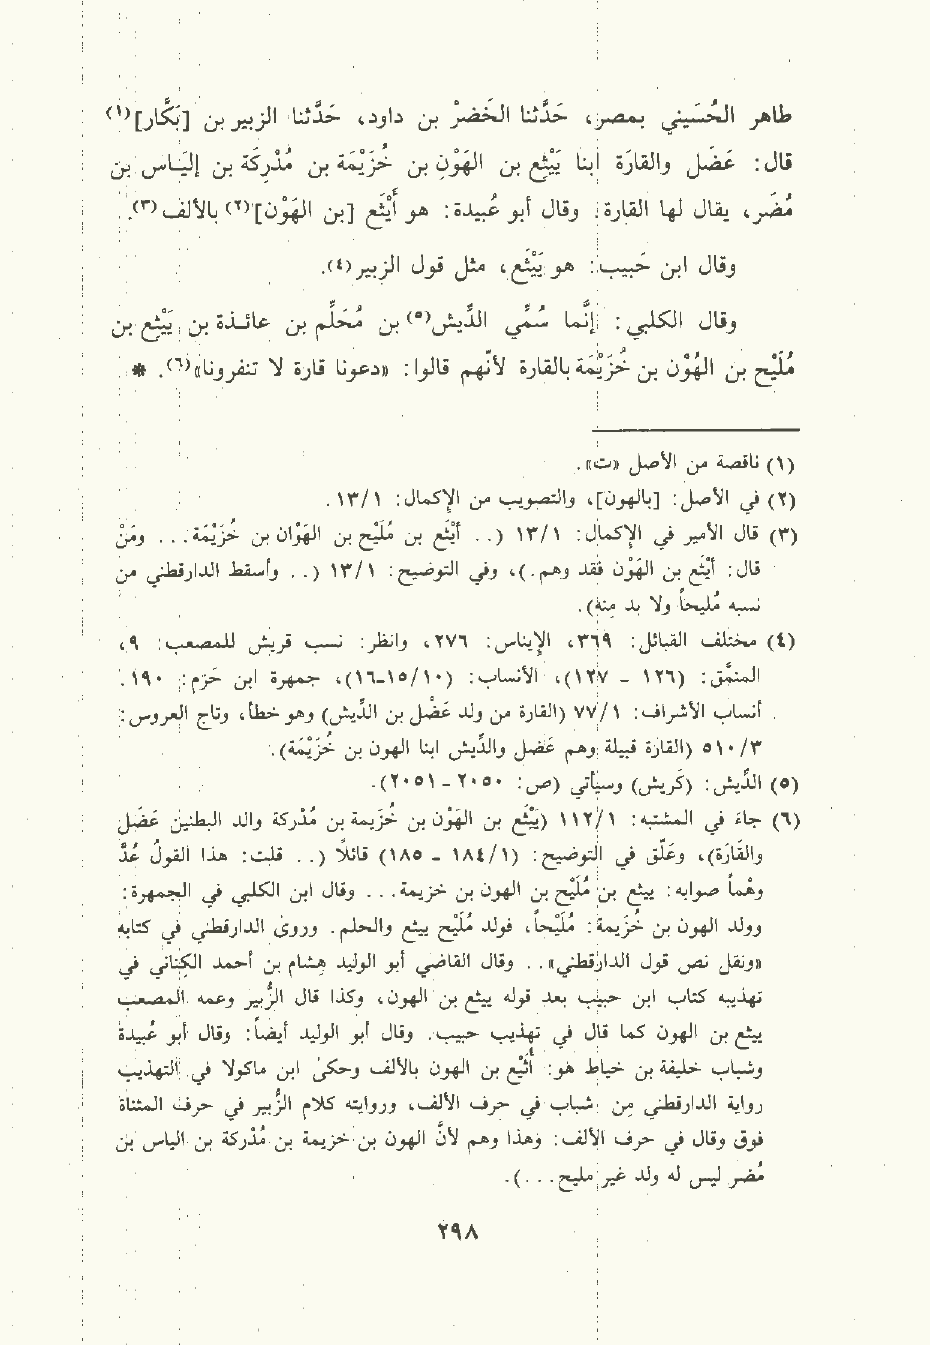 طاهر الحُسَيني بمصر، حَدَّثنا الخَضْر بن داود، حَدَّثنا الزبير بن [بَكَّار]⁽¹⁾
قال: عَضَل والقارَة ابنا يَيْثِع بن الهَوْن بن خُزَيْمَة بن مُدْرِكَة بن إلْيـَاس بن
مُضَر، يقال لها القارة. وقال أبو عُبيدة: هو أَيْثَع [بن الهَوْن]⁽²⁾ بالألف⁽³⁾.
وقال ابن حَبيب: هو يَيْثَع، مثل قول الزبير⁽⁴⁾.
وقال الكلبي: إنَّما سُمِّي الدِّيش⁽⁵⁾ بن مُحَلِّم بن عائـذة بن يَيْثِع بن
مُلَيْح بن الهُوْن بن خُزَيْمَة بالقارة لأنّهم قالوا: «دعونا قارة لا تنفرونا»⁽⁶⁾. *
(١) ناقصة من الأصل «ت».
(٢) في الأصل: [بالهون]، والتصويب من الإكمال: ١٣/١.
(٣) قال الأمير في الإكمال: ١٣/١ (.. أَيْثَع بن مُلَيْح بن الهَوْان بن خُزَيْمَة... ومَنْ
قال: أَيْثَع بن الهَوْن فقد وهم.)، وفي التوضيح: ١٣/١ (.. وأسقط الدارقطني من
نسبه مُليحاً ولا بد مِنهُ).
(٤) مختلف القبائل: ٣٦٩، الإيناس: ٢٧٦، وانظر: نسب قريش للمصعب: ٩،
المنمَّق: (١٢٦ - ١٢٧)، الأنساب: (١٥/١٠-١٦)، جمهرة ابن حَزم: ١٩٠.
أنساب الأشراف: ٧٧/١ (القارة من ولد عَضْل بن الدِّيش) وهو خطأ، وتاج العروس:
٥١٠/٣ (القارَة قبيلة وهم عَضل والدِّيش ابنا الهون بن خُزَيْمَة).
(٥) الدِّيش: (كَريش) وسيأتي (ص: ٢٠٥٠ - ٢٠٥١).
(٦) جاءَ في المشتبه: ١١٢/١ (يَيْثِع بن الهَوْن بن خُزَيمة بن مُدْركة والد البطنين عَضَل
والقَارَة)، وعَلَّق في التوضيح: (١٨٤/١ - ١٨٥) قائلاً (.. قلت: هذا القولُ عُدَّ
وهْماً صوابه: ييثع بن مُلَيْح بن الهون بن خزيمة... وقال ابن الكلبي في الجمهرة:
وولد الهون بن خُزَيمة: مُلَيْحاً، فولد مُلَيْح ييثع والحلم. وروى الدارقطني في كتابه
«ونقل نص قول الدارقطني».. وقال القاضي أبو الوليد هشام بن أحمد الكِناني في
تهذيبه كتاب ابن حبيب بعد قوله ييثع بن الهون، وكذا قال الزُّبير وعمه المصعب
ييثع بن الهون كما قال في تهذيب حبيب. وقال أبو الوليد أيضاً: وقال أبو عُبيدة
وشباب خليفة بن خياط هو: أَثْيَع بن الهون بالألف وحكىٰ ابن ماكولا في التهذيب
رواية الدارقطني مِن شباب في حرف الألف، وروايته كلام الزُّبير في حرف المثناة
فوق وقال في حرف الألف: وهذا وهم لأنّ الهون بن خزيمة بن مُدْركة بن الياس بن
مُضر ليس له ولد غير مليح...).
٢٩٨